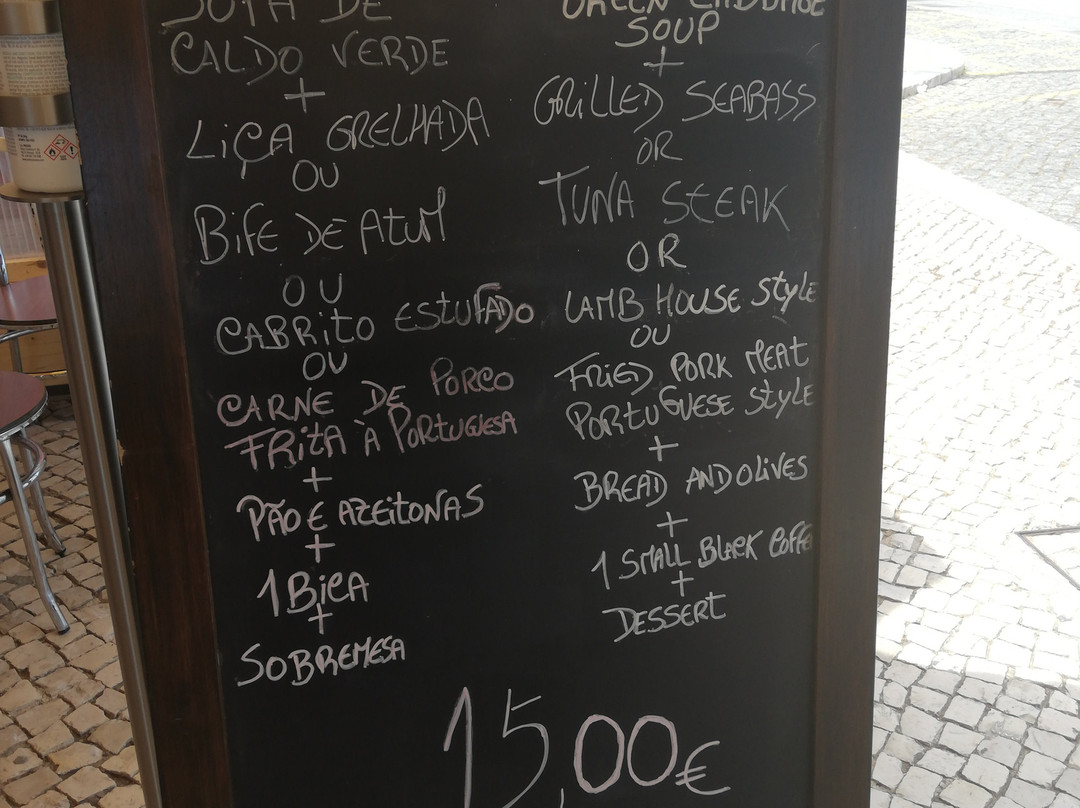 SOPA DE
CALDO VERDE
+
LIÇA GRELHADA
OU
BIFE DE ATUM
OU
CABRITO ESTUFADO
OU
CARNE DE PORCO
FRITA À PORTUGUESA
+
PÃO E AZEITONAS
+
1 BICA
+
SOBREMESA
GREEN CABBAGE
SOUP
+
GRILLED SEABASS
OR
TUNA STEAK
OR
LAMB HOUSE STYLE
OU
FRIED PORK MEAT
PORTUGUESE STYLE
+
BREAD AND OLIVES
+
1 SMALL BLACK COFFE
+
DESSERT
15,00€